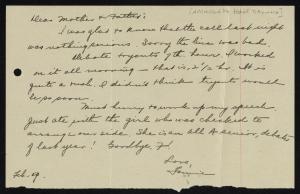 Dear Mother & Father:
I was glad to know that the call last night
was nothing serious. Sorry the line was bad.
Debate tryouts 7th hour. I worked
on it all morning — that is, 2 1/2 hr. It is
quite a rush. I didn't think tryouts would
be so soon.
Must hurry to work up my speech.
Just ate with the girl who was checked to
arrange our side. She is an all A senior, debater
of last year! Goodbye,
Love,
Feb. 19.